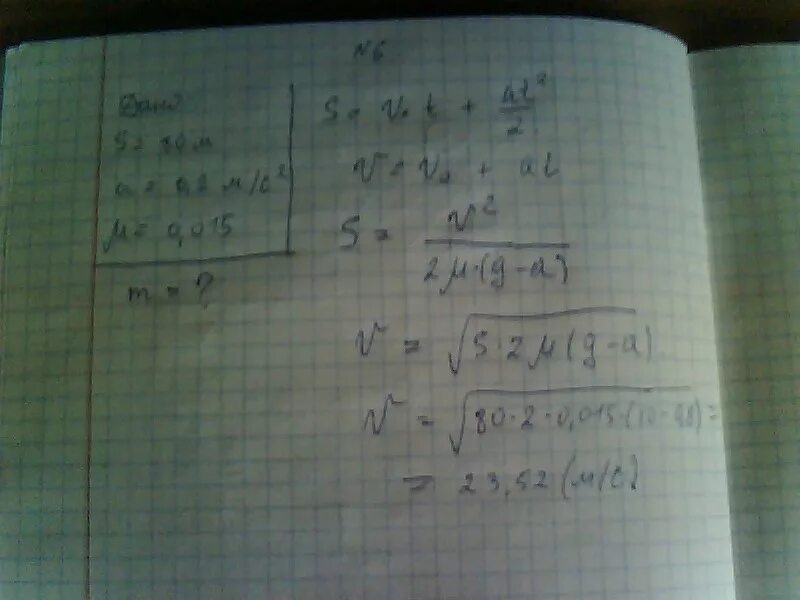 N6
Дано
S = 80 м
a = 0,2 м/с²
μ = 0,015
m = ?
S = v₀ t + at²/2
v = v₀ + at
S = v²/2μ·(g-a)
v = √S·2μ(g-a)
v = √80·2·0,015·(10-0,2) =
= 23,52 (м/с)